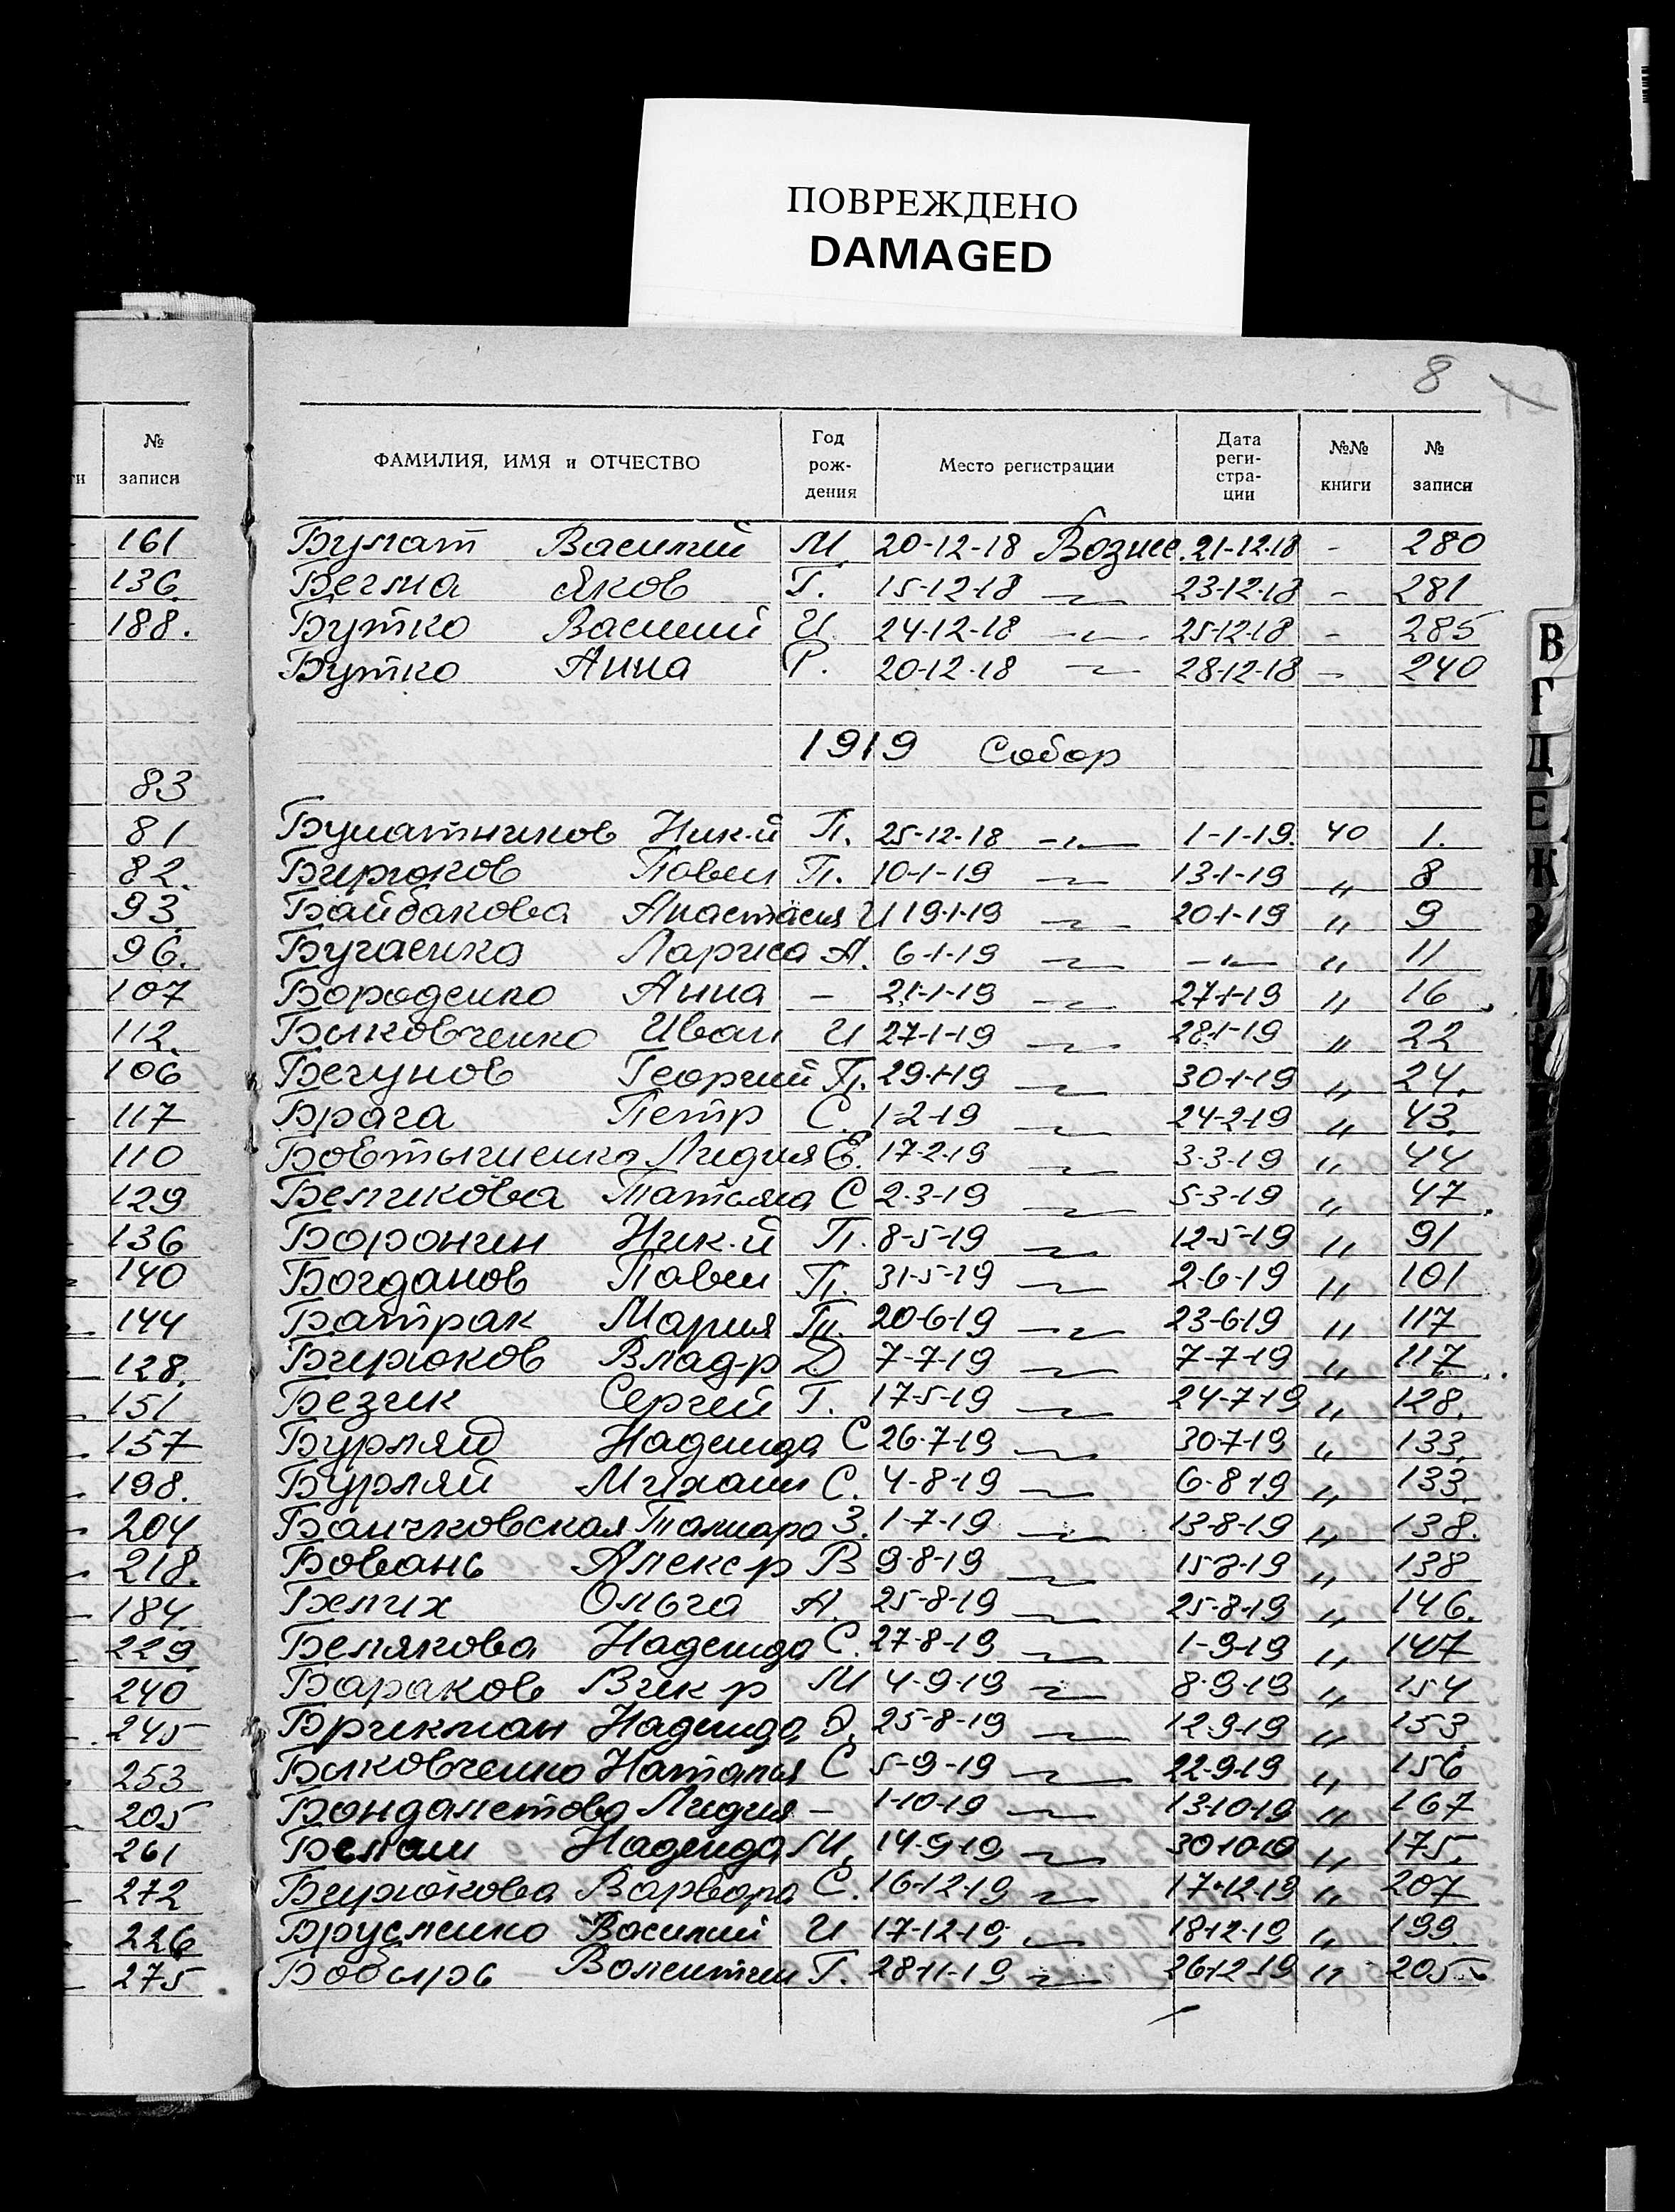 ПОВРЕЖДЕНО
DAMAGED
8
№ записи
161
136.
188.
83
81
82.
93.
96.
107
112.
106
117
110
129
136
140
144
128.
151
157
198.
204
218.
184.
229
240
245
253
205
261
272
226
275
ФАМИЛИЯ, ИМЯ и ОТЧЕСТВО Год рож- дения Место регистрации Дата реги- стра- ции №№ книги № записи
Булат Василий М 20-12-18 Вознес. 21-12-18 - 280
Бегма Яков Г. 15-12-18 -"- 23-12-18 - 281
Бутко Василий И. 24-12-18 -"- 25-12-18 - 285
Бутко Анна Р. 20-12-18 -"- 28-12-18 - 240
1919 Собор
Булатников Ник-й П. 25-12-18 -"- 1-1-19. 40 1.
Бирюков Павел П. 10-1-19 -"- 13-1-19 " 8
Байбакова Анастасия И 19-1-19 -"- 20-1-19 " 9
Бугаенко Лариса А. 6-1-19 -"- -"- " 11
Бороденко Анна - 21-1-19 -"- 27-1-19 " 16
Быковченко Иван И 27-1-19 -"- 28-1-19 " 22
Бегунов Георгий П. 29-1-19 -"- 30-1-19 " 24.
Брага Петр С. 1-2-19 -"- 24-2-19 " 43.
Бовтышенко Лидия Е. 17-2-19 -"- 3-3-19 " 44
Беликова Татьяна С 2-3-19 -"- 5-3-19 " 47.
Боронин Ник-й П. 8-5-19 -"- 12-5-19 " 91
Богданов Павел П. 31-5-19 -"- 2-6-19 " 101
Батрак Мария П. 20-6-19 -"- 23-6-19 " 117
Бирюков Влад-р Д 7-7-19 -"- 7-7-19 " 117
Безик Сергей Г. 17-5-19 -"- 24-7-19 " 128.
Бурляй Надежда С 26-7-19 -"- 30-7-19 " 133.
Бурляй Михаил С. 4-8-19 -"- 6-8-19 " 133.
Тамара З. 1-7-19 -"- 13-8-19 " 138.
Бовань Алексдр В 9-8-19 -"- 15-8-19 " 138
Белих Ольга А. 25-8-19 -"- 25-8-19 " 146.
Белякова Надежда С. 27-8-19 -"- 1-9-19 " 147
Бараков Викр М 4-9-19 -"- 8-9-19 " 154
Брикман Надежда 25-8-19 -"- 12-9-19 " 153.
Быковченко Наталья С 5-9-19 -"- 22-9-19 " 156
Бондалетова Лидия - 1-10-19 -"- 13-10-19 " 167
Белаш Надежда М. 14-9-19 -"- 30-10-19 " 175.
Бирюкова Варвара С. 16-12-19 -"- 17-12-19 " 207
Брусленко Василий И 17-12-19 -"- 18-12-19 " 199.
Бобырь Валентин Г. 28-11-19 -"- 26-12-19 " 205
В
Г
Д
Е
Ж
И